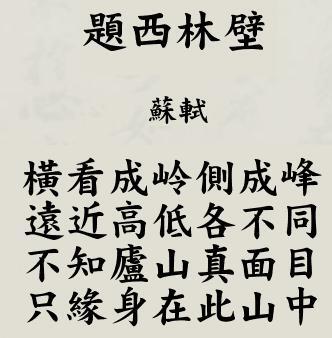 題西林壁
蘇軾
橫看成岭側成峰
遠近高低各不同
不知廬山真面目
只緣身在此山中